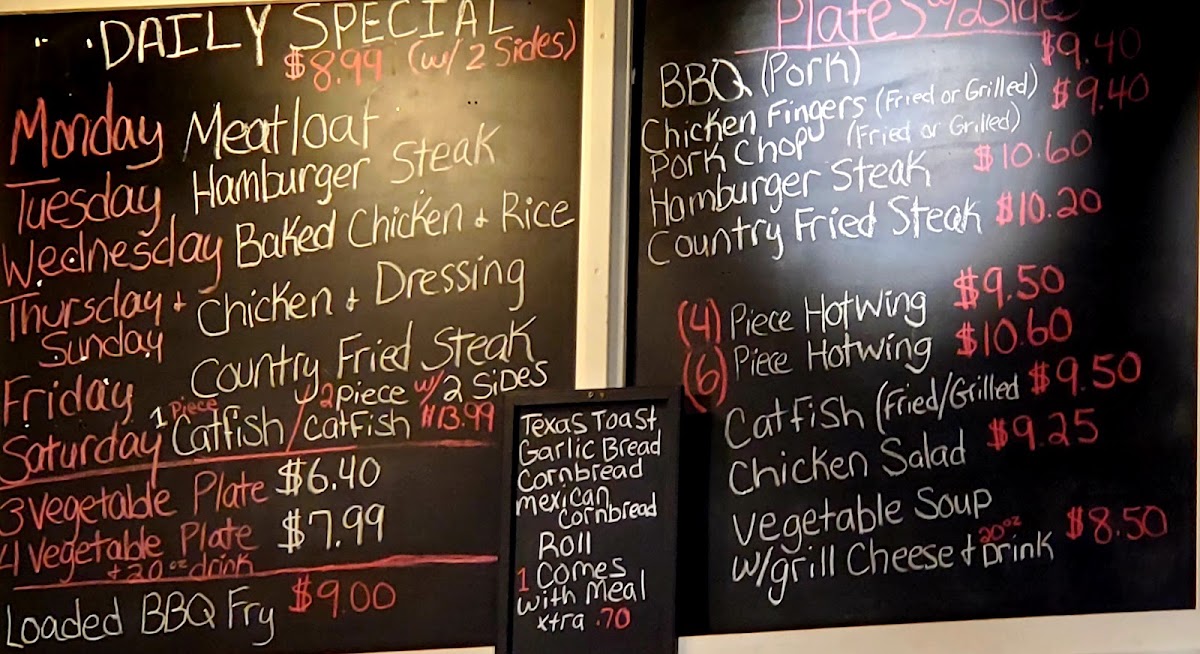 DAILY SPECIAL
$8.99 (w/ 2 Sides)
Monday Meatloaf
Tuesday Hamburger Steak
Wednesday Baked Chicken + Rice
Thursday + Sunday Chicken + Dressing
Friday Country Fried Steak
Saturday 1 Piece Catfish / 2 piece w/ 2 Sides catfish $13.99
3 Vegetable Plate $6.40
4 Vegetable Plate $7.99
+ 20 oz drink
Loaded BBQ Fry $9.00
Texas Toast
Garlic Bread
Cornbread
mexican
Cornbread
Roll
1 Comes
with Meal
xtra .70
Plates w/2 Side
BBQ (Pork) $9.40
Chicken Fingers (Fried or Grilled) $9.40
Pork Chop (Fried or Grilled)
Hamburger Steak $10.60
Country Fried Steak $10.20
(4) Piece Hotwing $9.50
(6) Piece Hotwing $10.60
Catfish (Fried/Grilled $9.50
Chicken Salad $9.25
Vegetable Soup
w/grill Cheese + 20 oz Drink $8.50